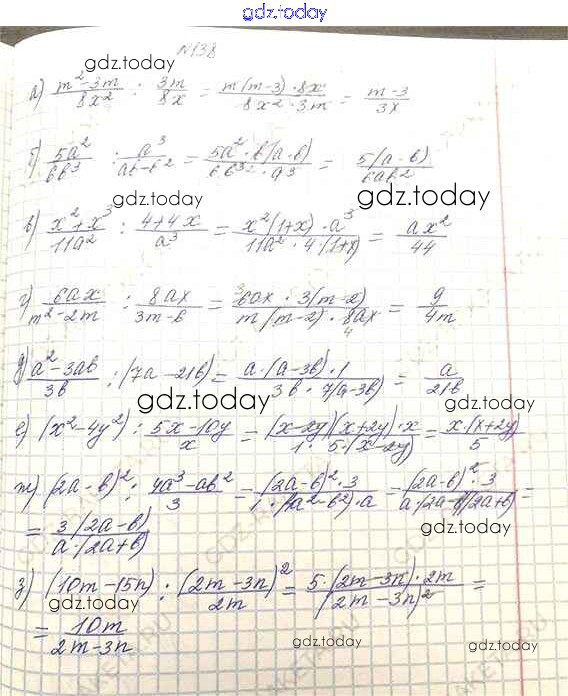 gdz.today
N138
gdz.today
а) (m² - 3m)/(8x²) : 3m/8x = (m(m-3) · 8x)/(8x² · 3m) = (m-3)/3x
б) 5a²/6b³ : a³/(ab-b²) = (5a² · b(a-b))/(6b³ · a³) = 5(a-b)/6ab²
gdz.today gdz.today
в) (x² + x³)/11a² : (4+4x)/a³ = (x²(1+x) · a³)/(11a² · 4(1+x)) = ax²/44
г) 6ax/(m²-2m) : 8ax/(3m-6) = (6ax · 3(m-2))/(m(m-2) · 8ax) = 9/4m
д) (a²-3ab)/3b : (7a-21b) = (a·(a-3b)·1)/(3b · 7(a-3b)) = a/21b
gdz.today
е) (x²-4y²) : (5x-10y)/x = ((x-2y)(x+2y)·x)/(1·5·(x-2y)) = x·(x+2y)/5
gdz.today
ж) (2a-b)² : (4a³-ab²)/3 = ((2a-b)²·3)/(1·(4a²-b²)·a) = ((2a-b)²·3)/(a·(2a-b)(2a+b)) =
= 3(2a-b)/a·(2a+b)
gdz.today
gdz.today
з) (10m-15n) : (2m-3n)²/2m = (5·(2m-3n)·2m)/(2m-3n)² =
gdz.today
= 10m/(2m-3n)
gdz.today
gdz.today